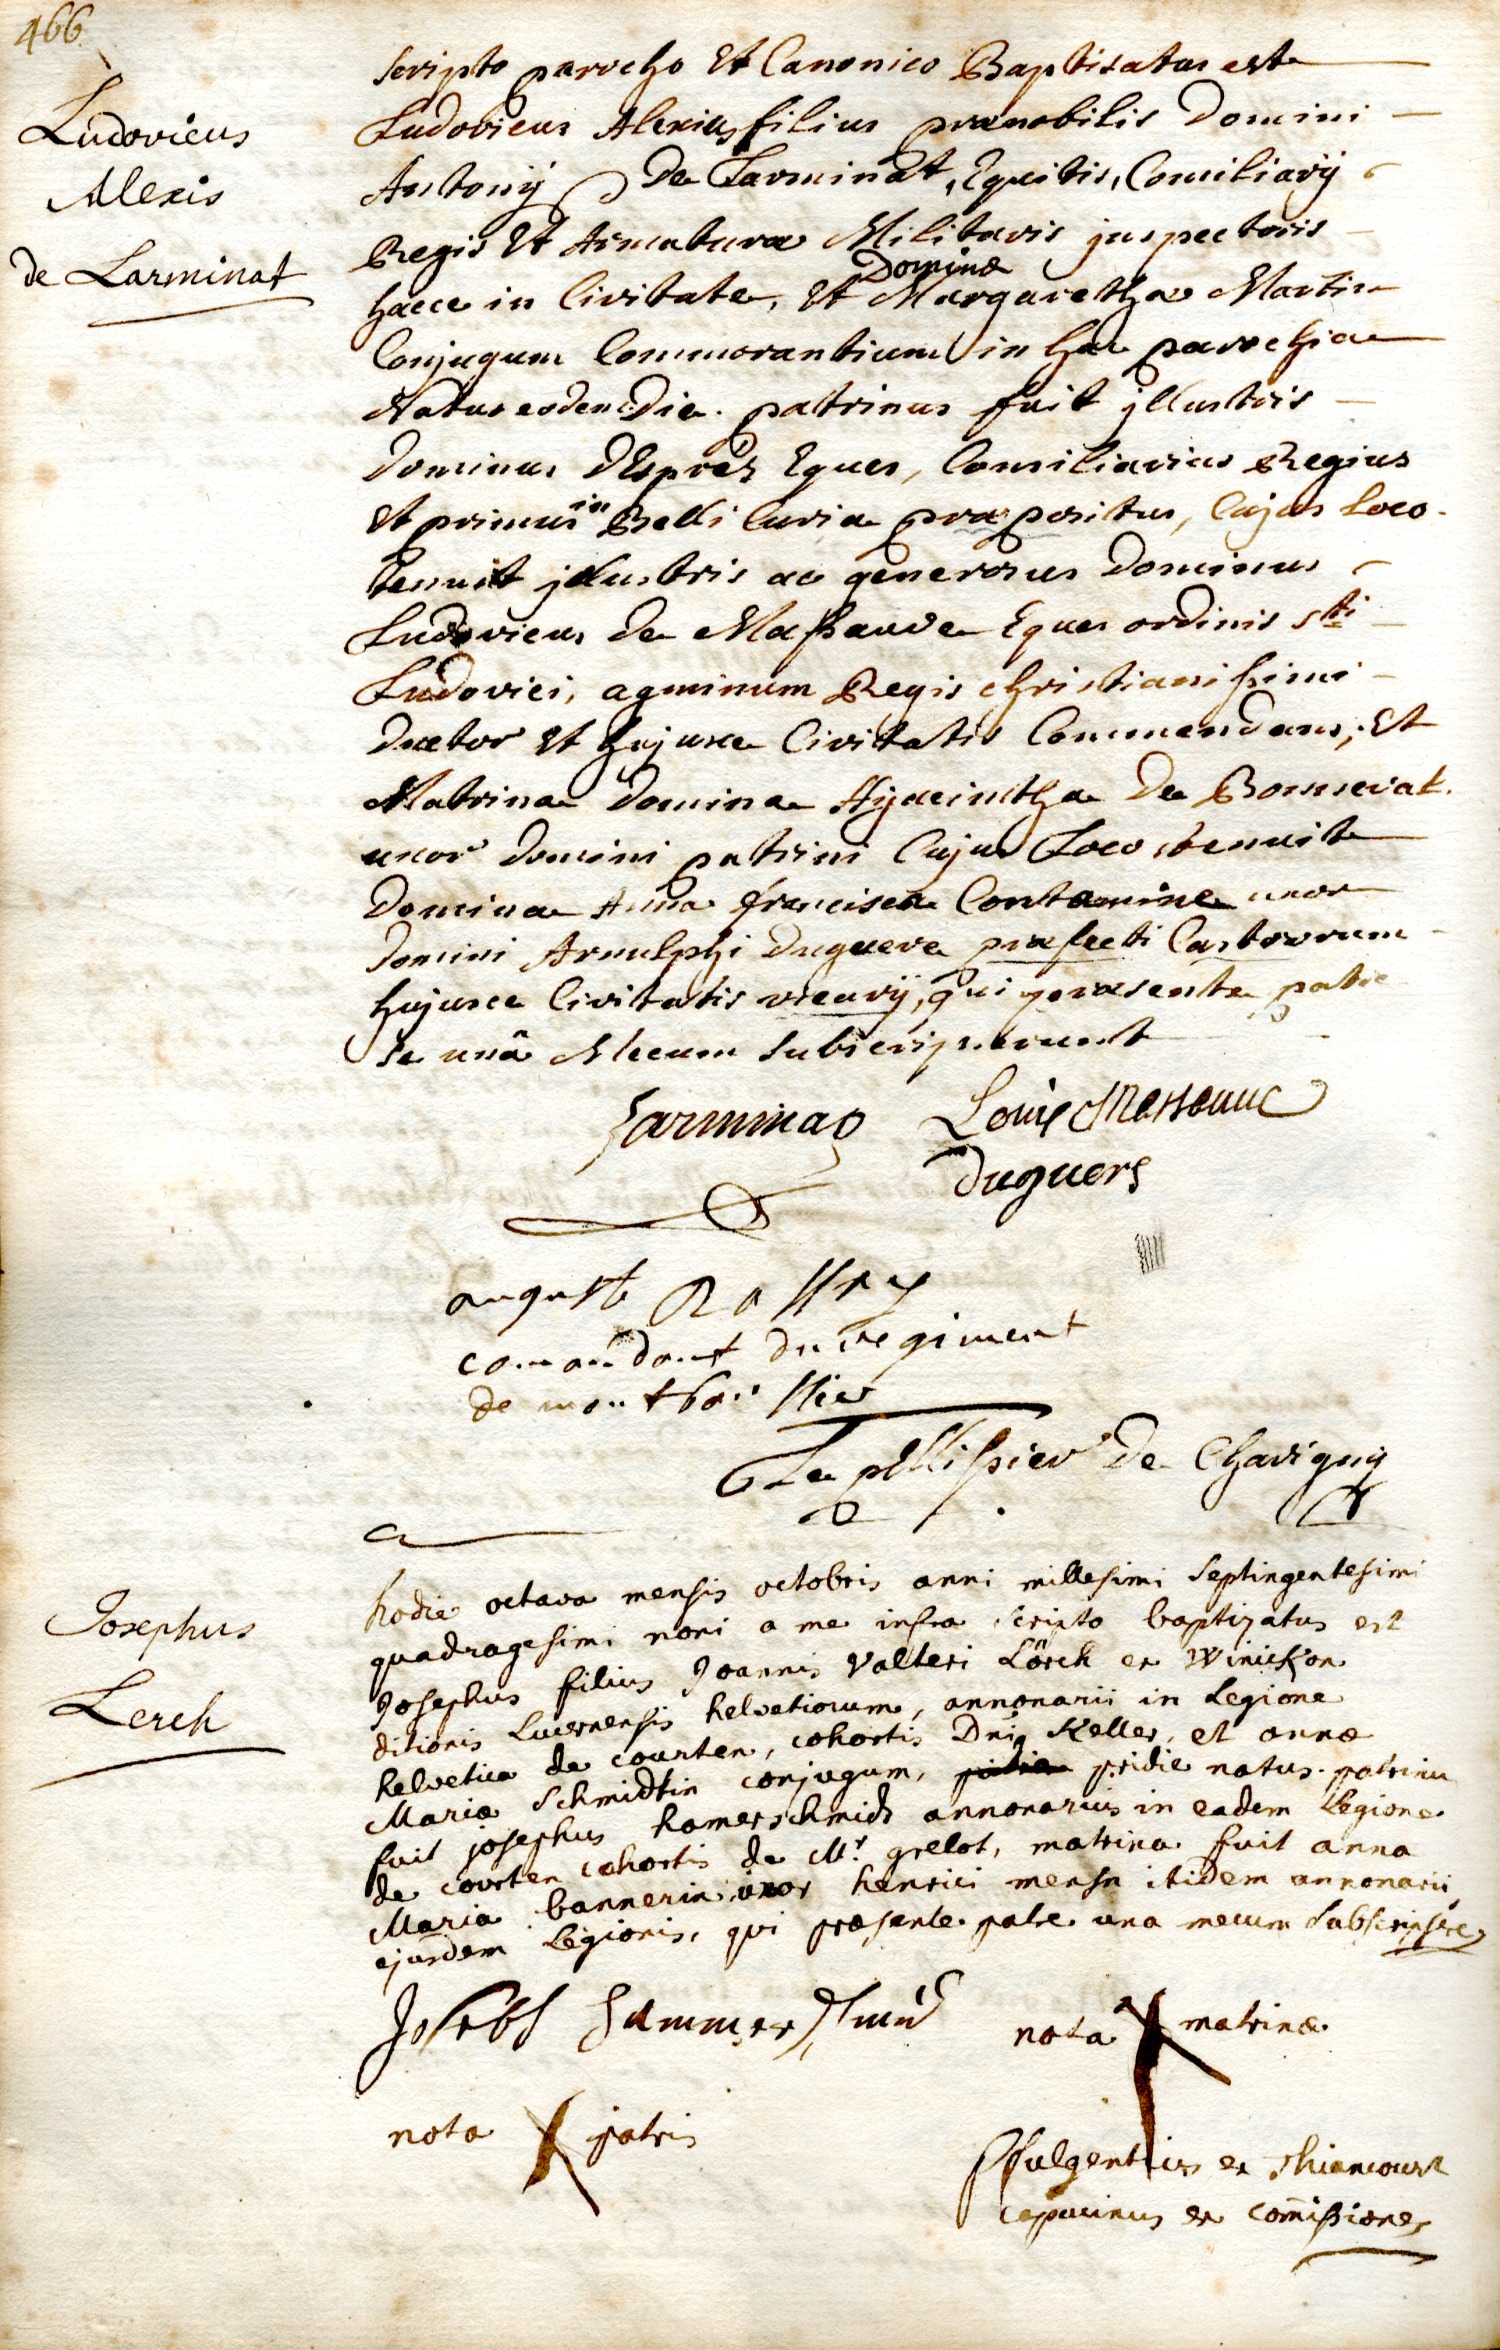 466
Ludovicus
Alexis
de Larminat
scripto parocho Et Canonico Baptisatus est
Ludovicus Alexius filius prænobilis Domini
Antonÿ De Larminat, Equitis, Consiliarÿ
Regis Et Armaturæ Militaris jnspectoris
hacce in Civitate, Et Dominæ Margarethæ Martin
Conjugum Commorantium in hac parochia
Natus eodem Die. patrinus fuit jllustris
Dominus DEsprés Eques, Consiliarius Regius
Et primus in Belli Curia præpositus, Cujus Loco
tenuit jllustris ac generosus Dominus
Ludovicus de Massauve Eques ordinis sti
Ludovici, agminum Regis christianissimi
ductor Et hujusce Civitatis Commendans, Et
Matrina Domina Hyacintha De Bonneval
uxor Domini patrini Cujus Loco tenuit
Domina Anna francisca Contamine uxor
Domini Arnulphi Duguere præfecti Castrorum
hujusce Civitatis vicarÿ, qui præsente patre
se unâ Mecum subscripserunt
Larminat Louis Massauve
Duguers
august
comandant du regiment
de
Le pellissier De Chavigny
Josephus
Lerch
hodie octava mensis octobris anni millesimi septingentesimi
quadragesimi noni a me infra scripto baptizatus est
Josephus filius Joannis Valteri Lörch ex Winickon
ditionis Lucernensis helvetiorum, annonarii in Legione
helvetica de courten, cohortis Dni Keller, et annæ
Mariæ Schmidtin conjugum, pridie natus. patrinu
fuit josephus hamerschmidt annonarius in eadem Legione
de courten cohortis de Mr. grelot, matrina fuit anna
Maria bannerin uxor henrici mensn itidem annonarii
ejusdem Legionis, qui præsente patre una mecum subscripsere
Joseph Hammerschmid
nota matrinæ
nota patris
fulgentius ex thiancourt
capucinus ex com̄issione